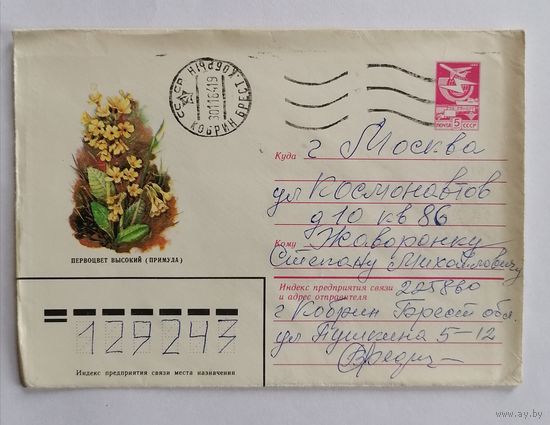 СССР КОБРИН БРЕСТ. КОБРЫН
301184 19
ПОЧТА СССР 5
Куда
г Москва
ул Космонавтов
д 10 кв 86
Кому
Жаворонку
Степану Михайловичу
ПЕРВОЦВЕТ ВЫСОКИЙ (ПРИМУЛА)
Индекс предприятия связи
и адрес отправителя
225860
г Кобрин Брест обл.
ул Пушкина 5-12
129243
Индекс предприятия связи места назначения
www.ay.by